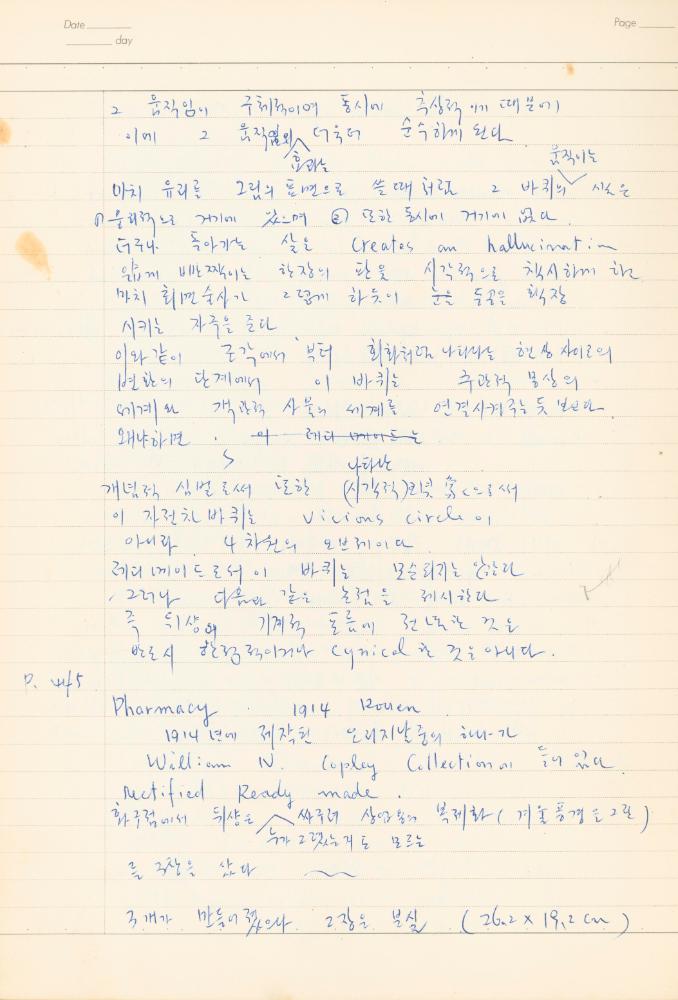 Date
day
Page
그 움직임이 구체적이며 동시에 추상적이기 때문에
이에 그 움직임의 더욱더 순수하게 된다
효과는
움직이는
마치 유리를 그림의 표면으로 쓸때 처럼 그 바퀴의 시선은
① 물리적으로 거기에 있으며 ② 또한 동시에 거기에 없다.
더구나 돌아가는 살은 creates an hallucination
넓게 반짝이는 한장의 판을 시각적으로 착시하게 하고
마치 최면술사가 그렇게 하듯이 눈을 동공을 확장
시키는 자극을 준다
이와 같이 조각에서 부터 회화처럼 나타나는 현상 사이로의
변환의 단계에서 이 바퀴는 주관적 몽상의
세계와 객관적 사물의 세계를 연결시켜주는 듯 보인다.
왜냐하면 . 의 레디메이드는
나타난
개념적 심벌로써 또한 (시각적) 으로써
이 자전차바퀴는 vicious circle이
아니라 4차원의 오브제이다.
레디메이드로서 이 바퀴는 모순되지는 않는다
그러나 다음과 같은 논점을 제시한다
즉 뒤샹의 기계적 흐름에 전념한 것은
반드시 한정적이거나 cynical한 것은 아니다.
P. 445
Pharmacy . 1914 Rouen
1914년에 제작된 오리지날중의 하나가
William N. Copley Collection에 들어 있다
Rectified Ready made .
화구점에서 뒤샹은 싸구려 상업용의 복제화 (겨울풍경을 그린)
누가 그렸는지도 모르는
를 3장을 샀다
3개가 만들어졌으나 2장은 분실 (26.2 x 19.2 cm)